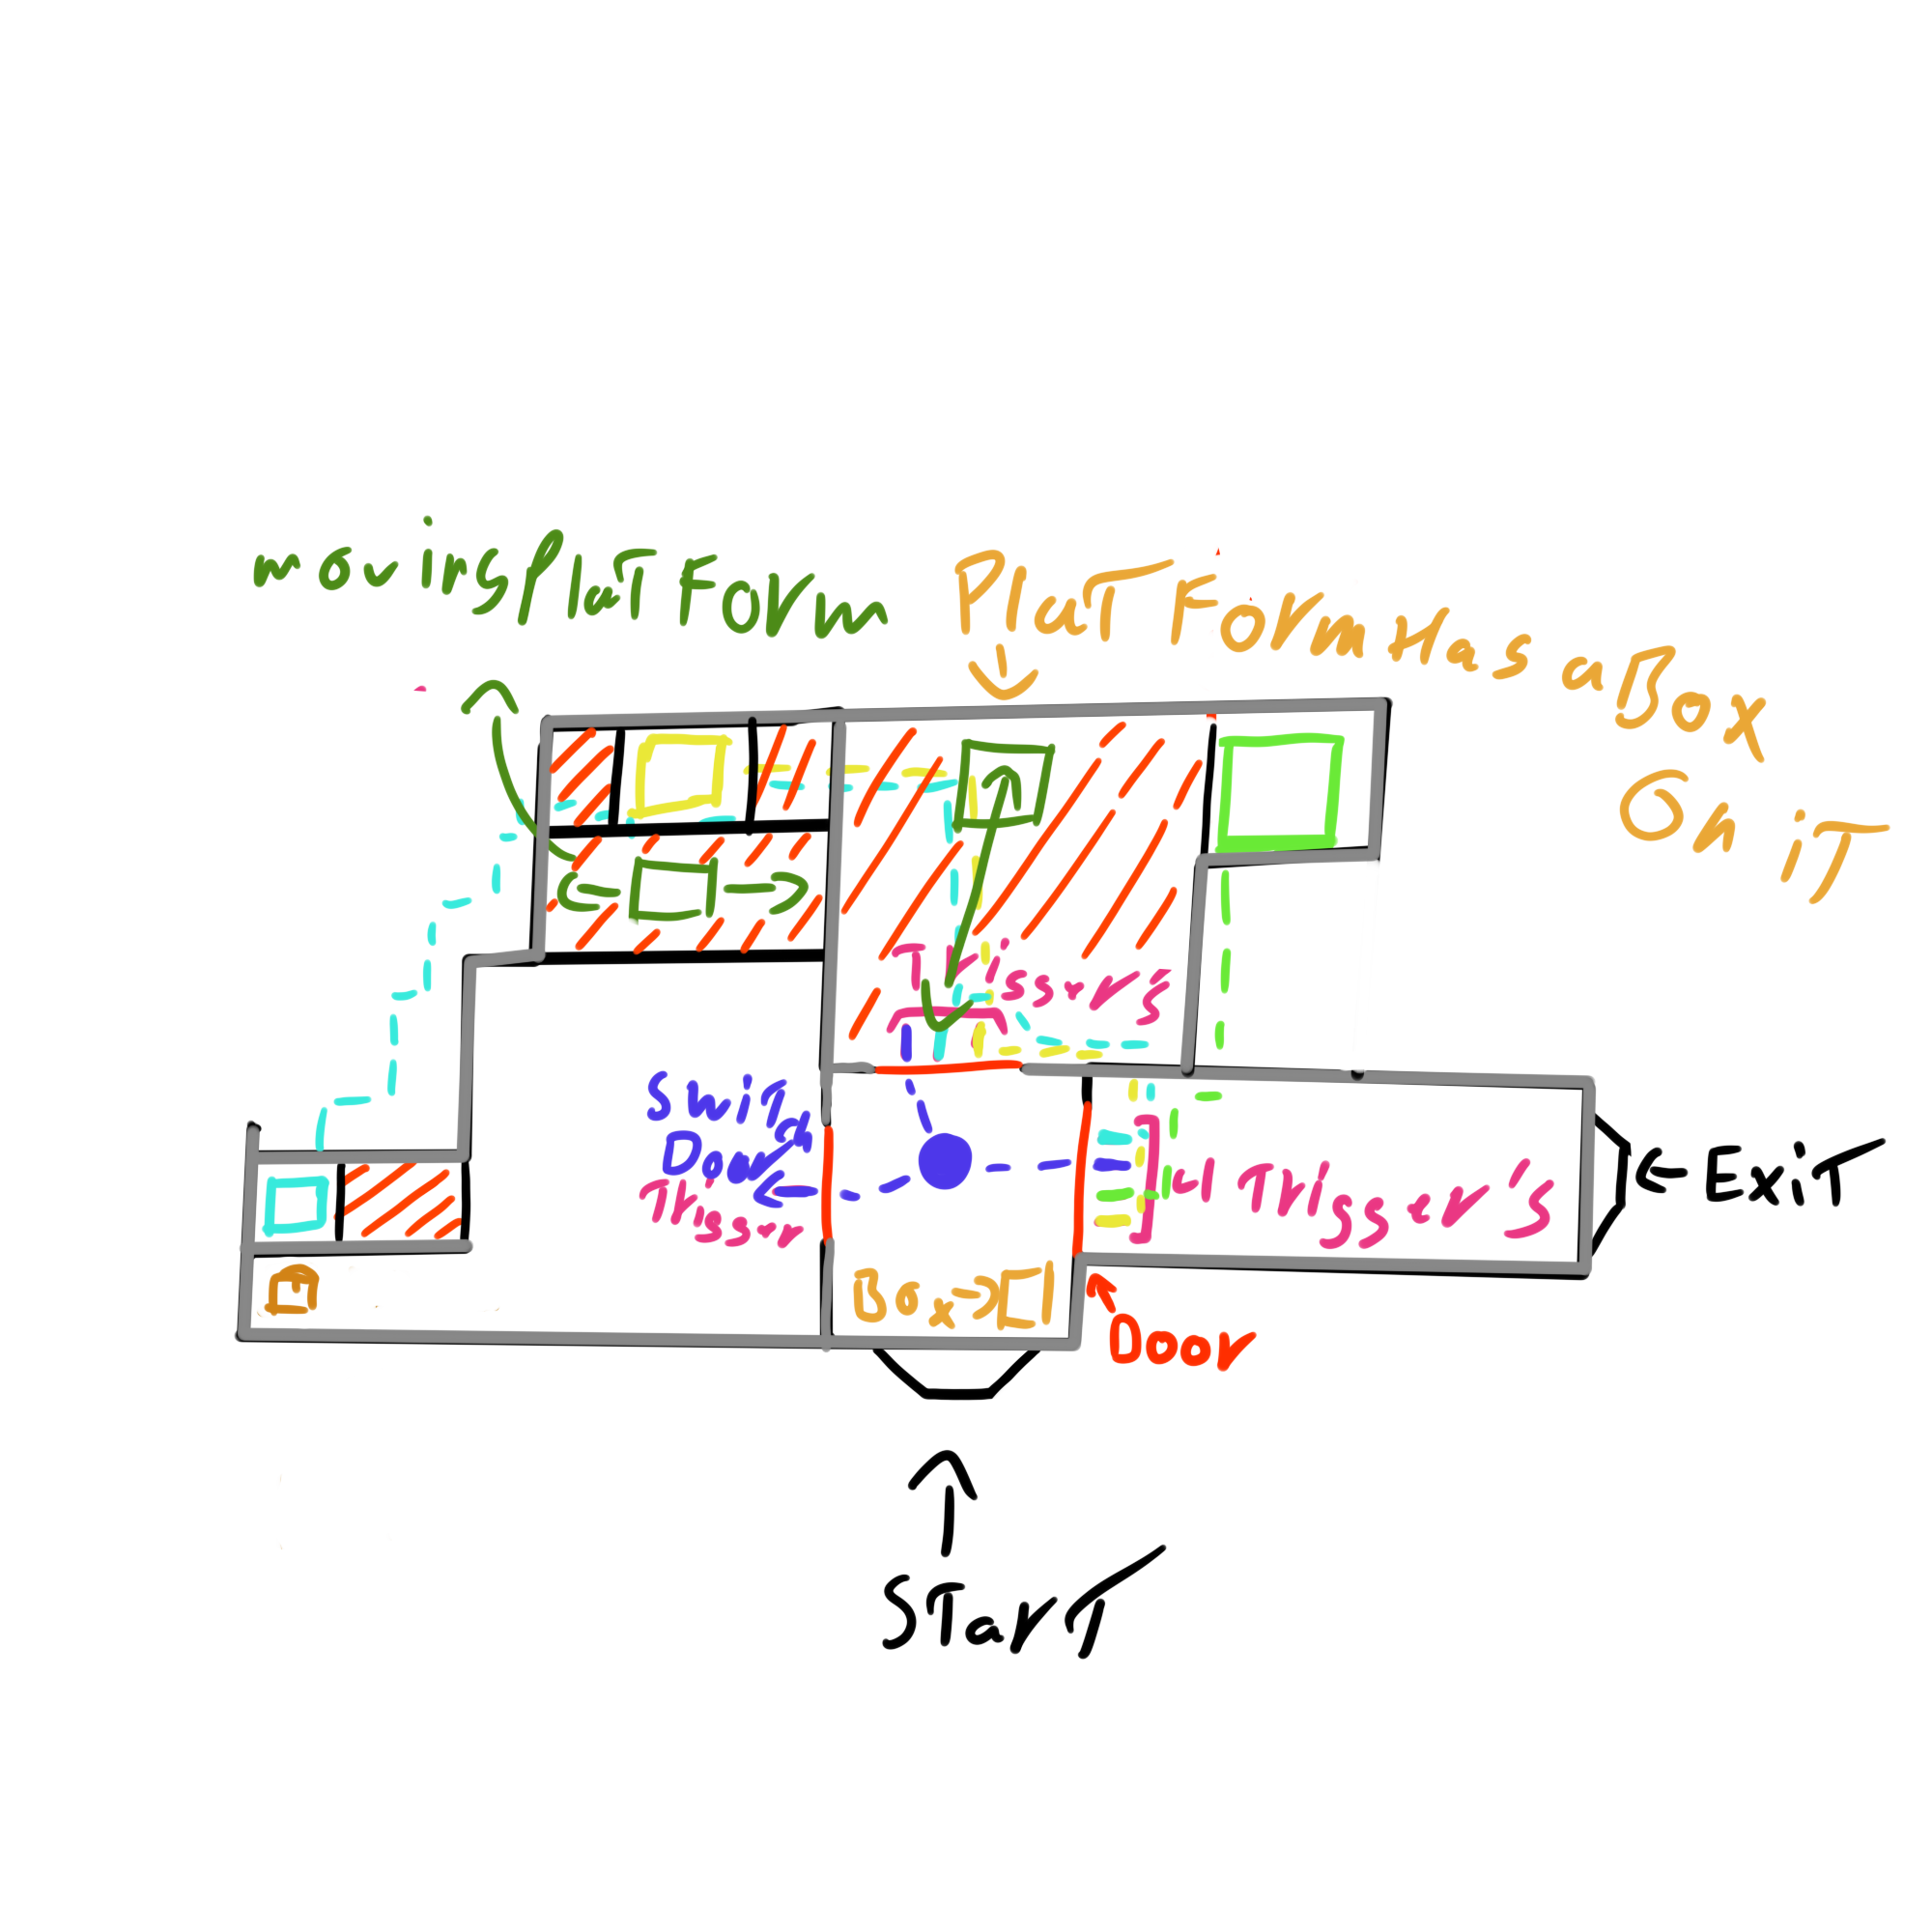 moving PlaTForm
PlaTForm Has a Box
On iT
Trigger's
Swich
Door
Trigger
← Trigger's
← ExiT
Box →
Door
STarT